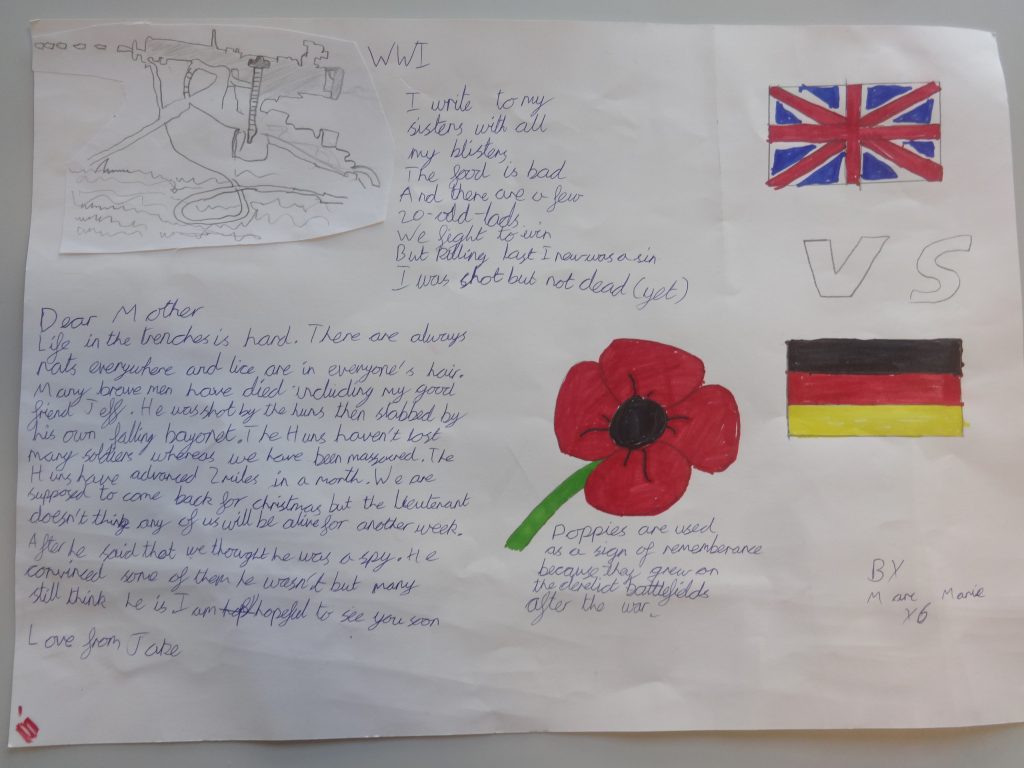 WWI
I write to my
sisters with all
my blisters
The food is bad
And there are a few
20-old-lads.
We fight to win
But killing last I new was a sin
I was shot but not dead (yet)
VS
Dear Mother
Life in the trenches is hard. There are always
rats everywhere and lice are in everyone's hair.
Many brave men have died including my good
friend Jeff. He was shot by the huns then stabbed by
his own falling bayonet. The Huns haven't lost
many soldiers whereas we have been massacred. The
Huns have advanced 2 miles in a month. We are
supposed to come back for christmas but the Lieutenant
doesn't think any of us will be alive for another week.
After he said that we thought he was a spy. He
convinced some of them he wasn't but many
still think he is I am hopeful to see you soon
Love from Jake
Poppies are used
as a sign of rememberance
because they grew on
the derelict battlefields
after the war.
BY
Marie
Y6